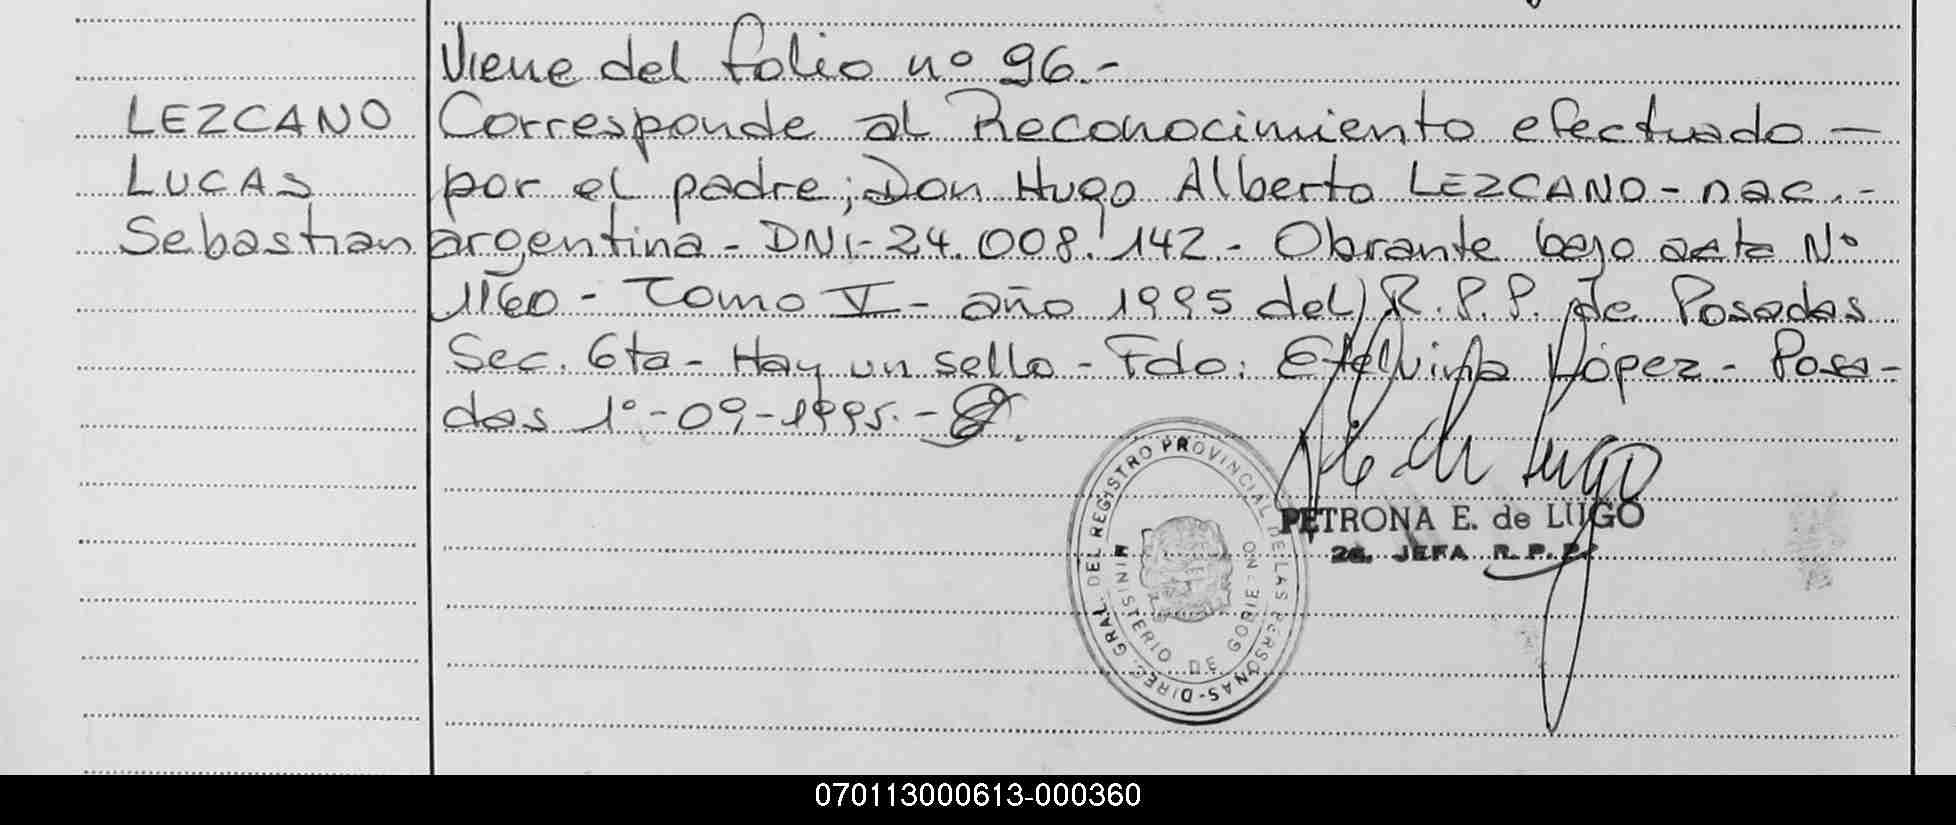 Viene del folio nº 96.-
LEZCANO Corresponde al Reconocimiento efectuado —
LUCAS por el padre; Don Hugo Alberto LEZCANO - nac. -
Sebastian argentina - DNI - 24.008.142 - Obrante bajo acta Nº
1160 - Tomo V - año 1995 del R.P.P. de Posadas
Sec. 6ta - Hay un sello - Fdo: Etelvina López - Posa-
das 1º-09-1995.-
DIREC. GRAL. DEL REGISTRO PROVINCIAL DE LAS PERSONAS-
MINISTERIO DE GOBIERNO
PETRONA E. de LUGO
2a. JEFA R. P. P.
070113000613-000360